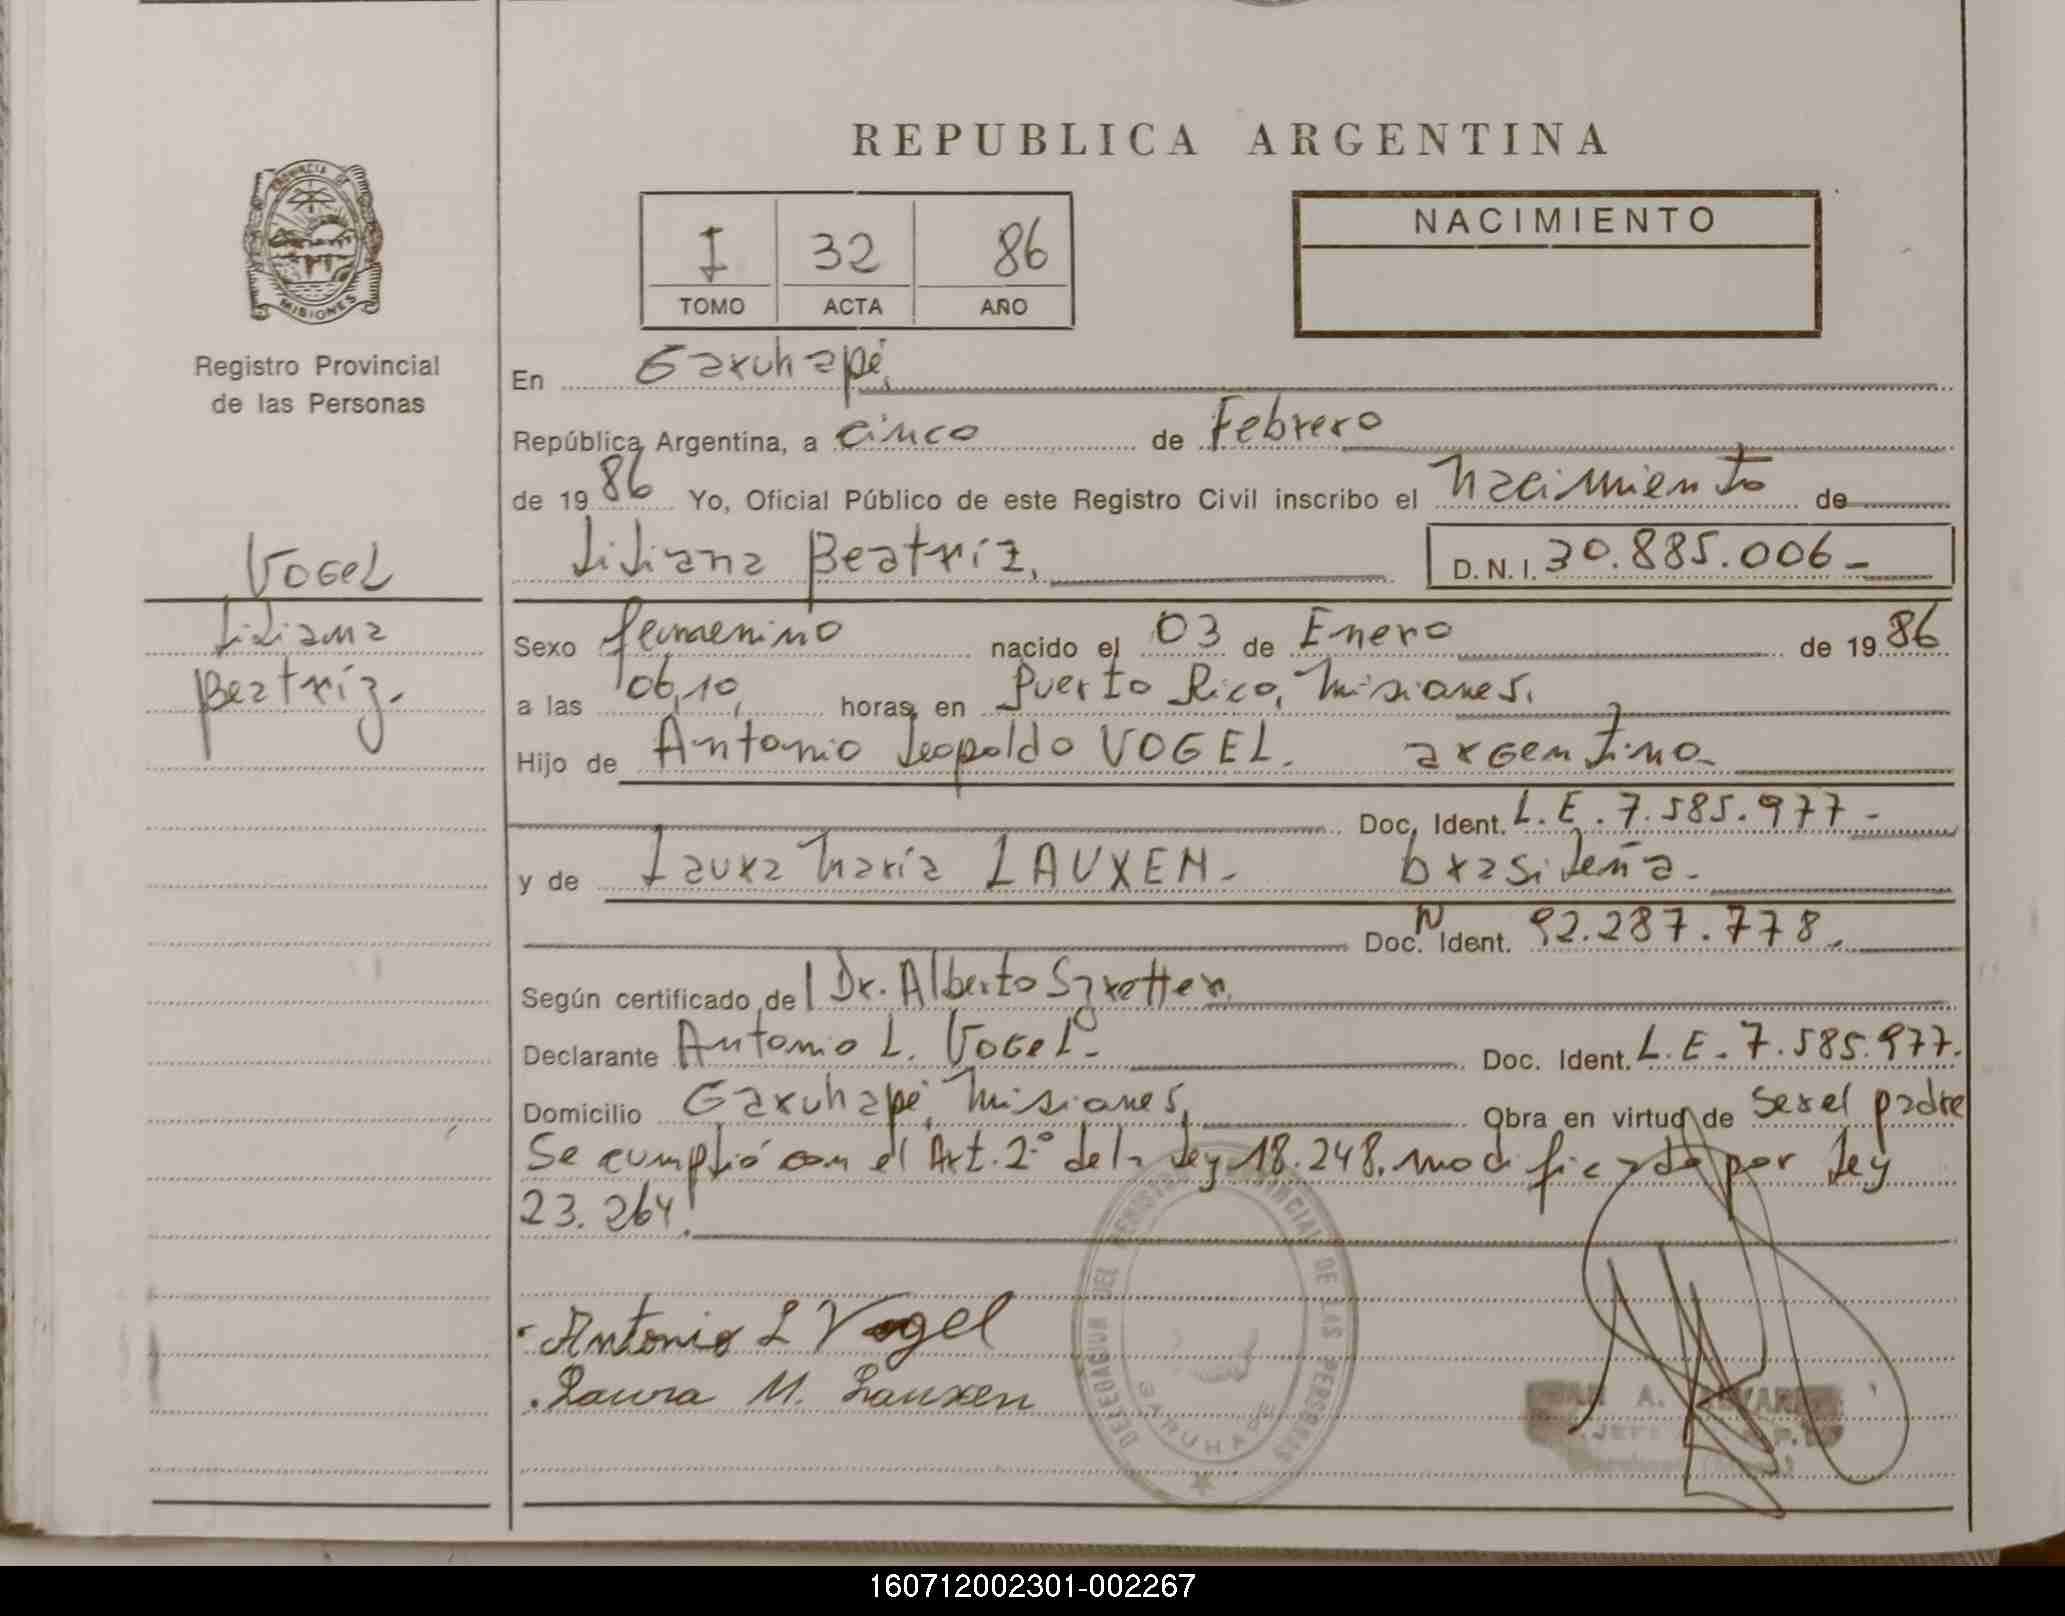 REPUBLICA ARGENTINA
PROVINCIA DE
MISIONES
Registro Provincial
de las Personas
I 32 86
TOMO ACTA AÑO
NACIMIENTO
En Garuhapé,
República Argentina, a cinco de Febrero
de 1986 Yo, Oficial Público de este Registro Civil inscribo el Nacimiento de
Liliana Beatríz, D.N.I. 30.885.006-
VOGEL
Liliana
Beatríz.
Sexo femenino nacido el 03 de Enero de 1986
a las 06,10, horas, en Puerto Rico, Misiones.
Hijo de Antonio Leopoldo VOGEL. argentino-
Doc. Ident. L.E. 7.585.977-
y de Laura María LAUXEN- brasileña-
Doc. N Ident. 92.287.778.
Según certificado de l Dr. Alberto
Declarante Antonio L. Vogel- Doc. Ident. L.E. 7.585.977.
Domicilio Garuhapé, Misiones, Obra en virtud de ser el padre
Se cumplió con el Art. 2º de la Ley 18.248, modificado por Ley
23.264.
Antonio L Vogel
Laura M. Lauxen
DELEGACION DEL REGISTRO PROVINCIAL DE LAS PERSONAS
GARUHAPE
A.
JEFE
160712002301-002267